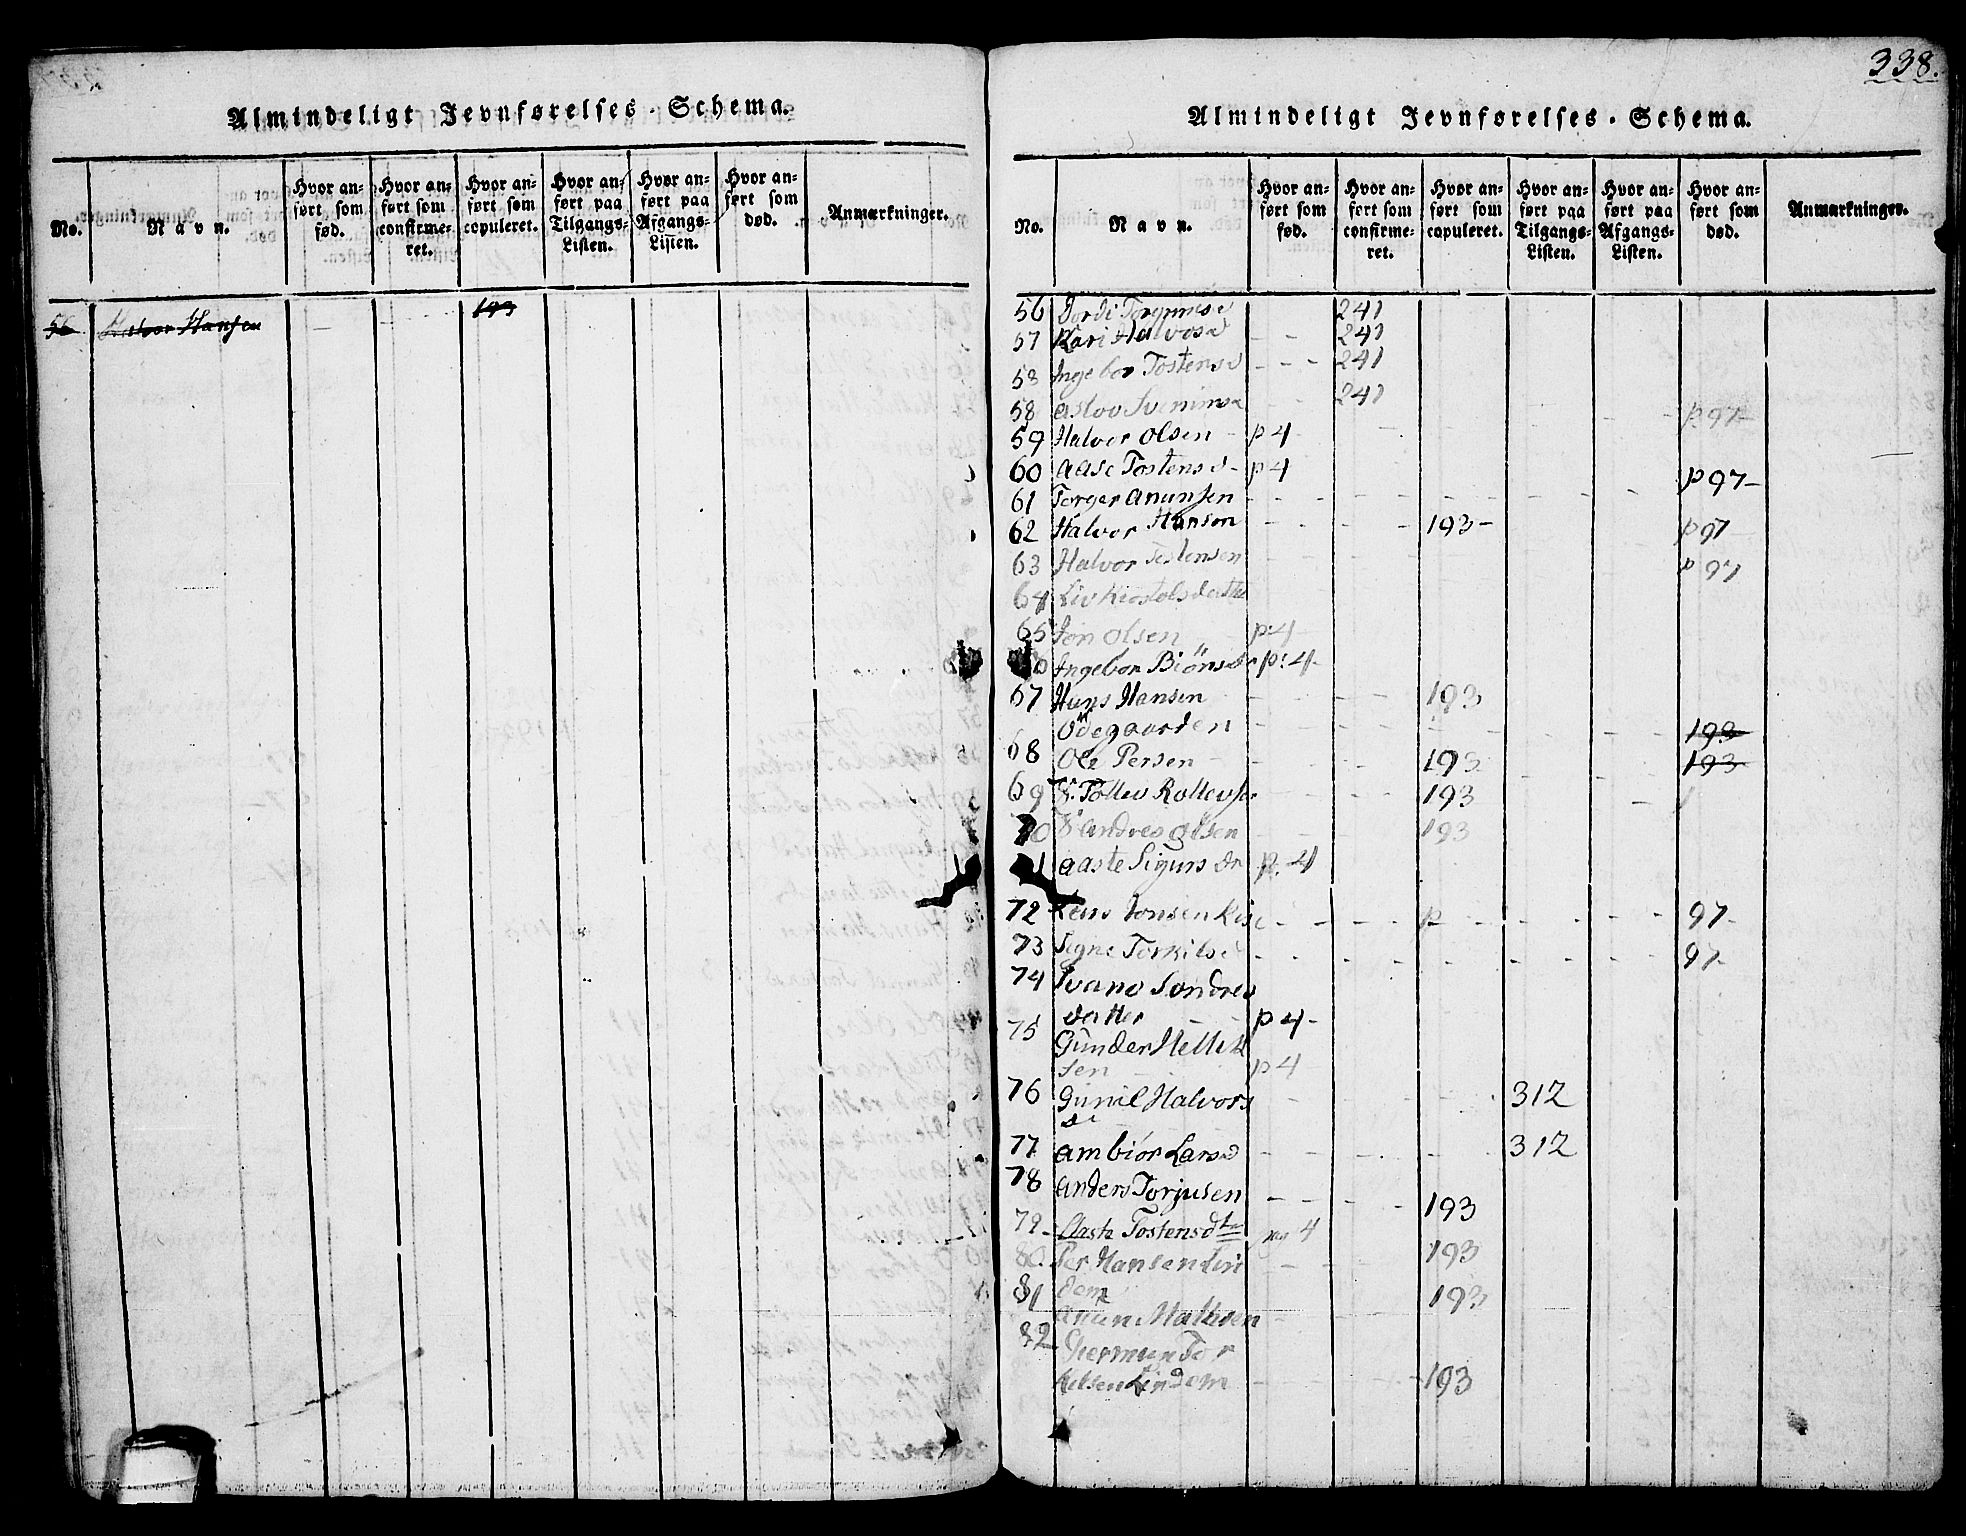 Almindeligt Jevnførelses-Schema.
No. Navn. Hvor anført som fød. Hvor anført som confirmeret. Hvor anført som copuleret. Hvor anført paa Tilgangs-Listen. Hvor anført paa Afgangs-Listen. Hvor anført som død. Anmærkninger.
56 Halvor Hansen - - 193
338.
Almindeligt Jevnførelses-Schema.
No. Navn. Hvor anført som fød. Hvor anført som confirmeret. Hvor anført som copuleret. Hvor anført paa Tilgangs-Listen. Hvor anført paa Afgangs-Listen. Hvor anført som død. Anmærkninger.
56 241
57 Kari Halvosd - - 241
58 Ingebor Tostensd - - - 241
58 - - 241 - - p97-
59 Halvor Olsen - p4
60 aase Tostensd - p4 p97-
61 Torger anunsen
62 Halvor Hanson - - - 193 - p97
63 Halvor Tostensen - - p97
64
65 Jon Olsen p:4
Ingebor Biönsdr p:4-
67 Hans Hansen - - - 193
Ödegaarden - - - 193
68 Ole Persen - 193 193
69 193
70 andres olsen 193
aaste Sigurs dr p. 4
72 Jonsen - - - p - - - 97-
73 Signe Torkilsd - - - - - - 97-
74 Svano Sondres
datter - - p4-
75 Gunder
sen - p4-
76 Gunil Halvors - - - 312
77 ambiör Larsd - - - - 312
78 anders Torjusen - - - 193
79- Aaste Tostensdtr 4
80. Per Hansen Lin - - - 193
81 dem 193
82
Kelsen Lindem - - - - 193